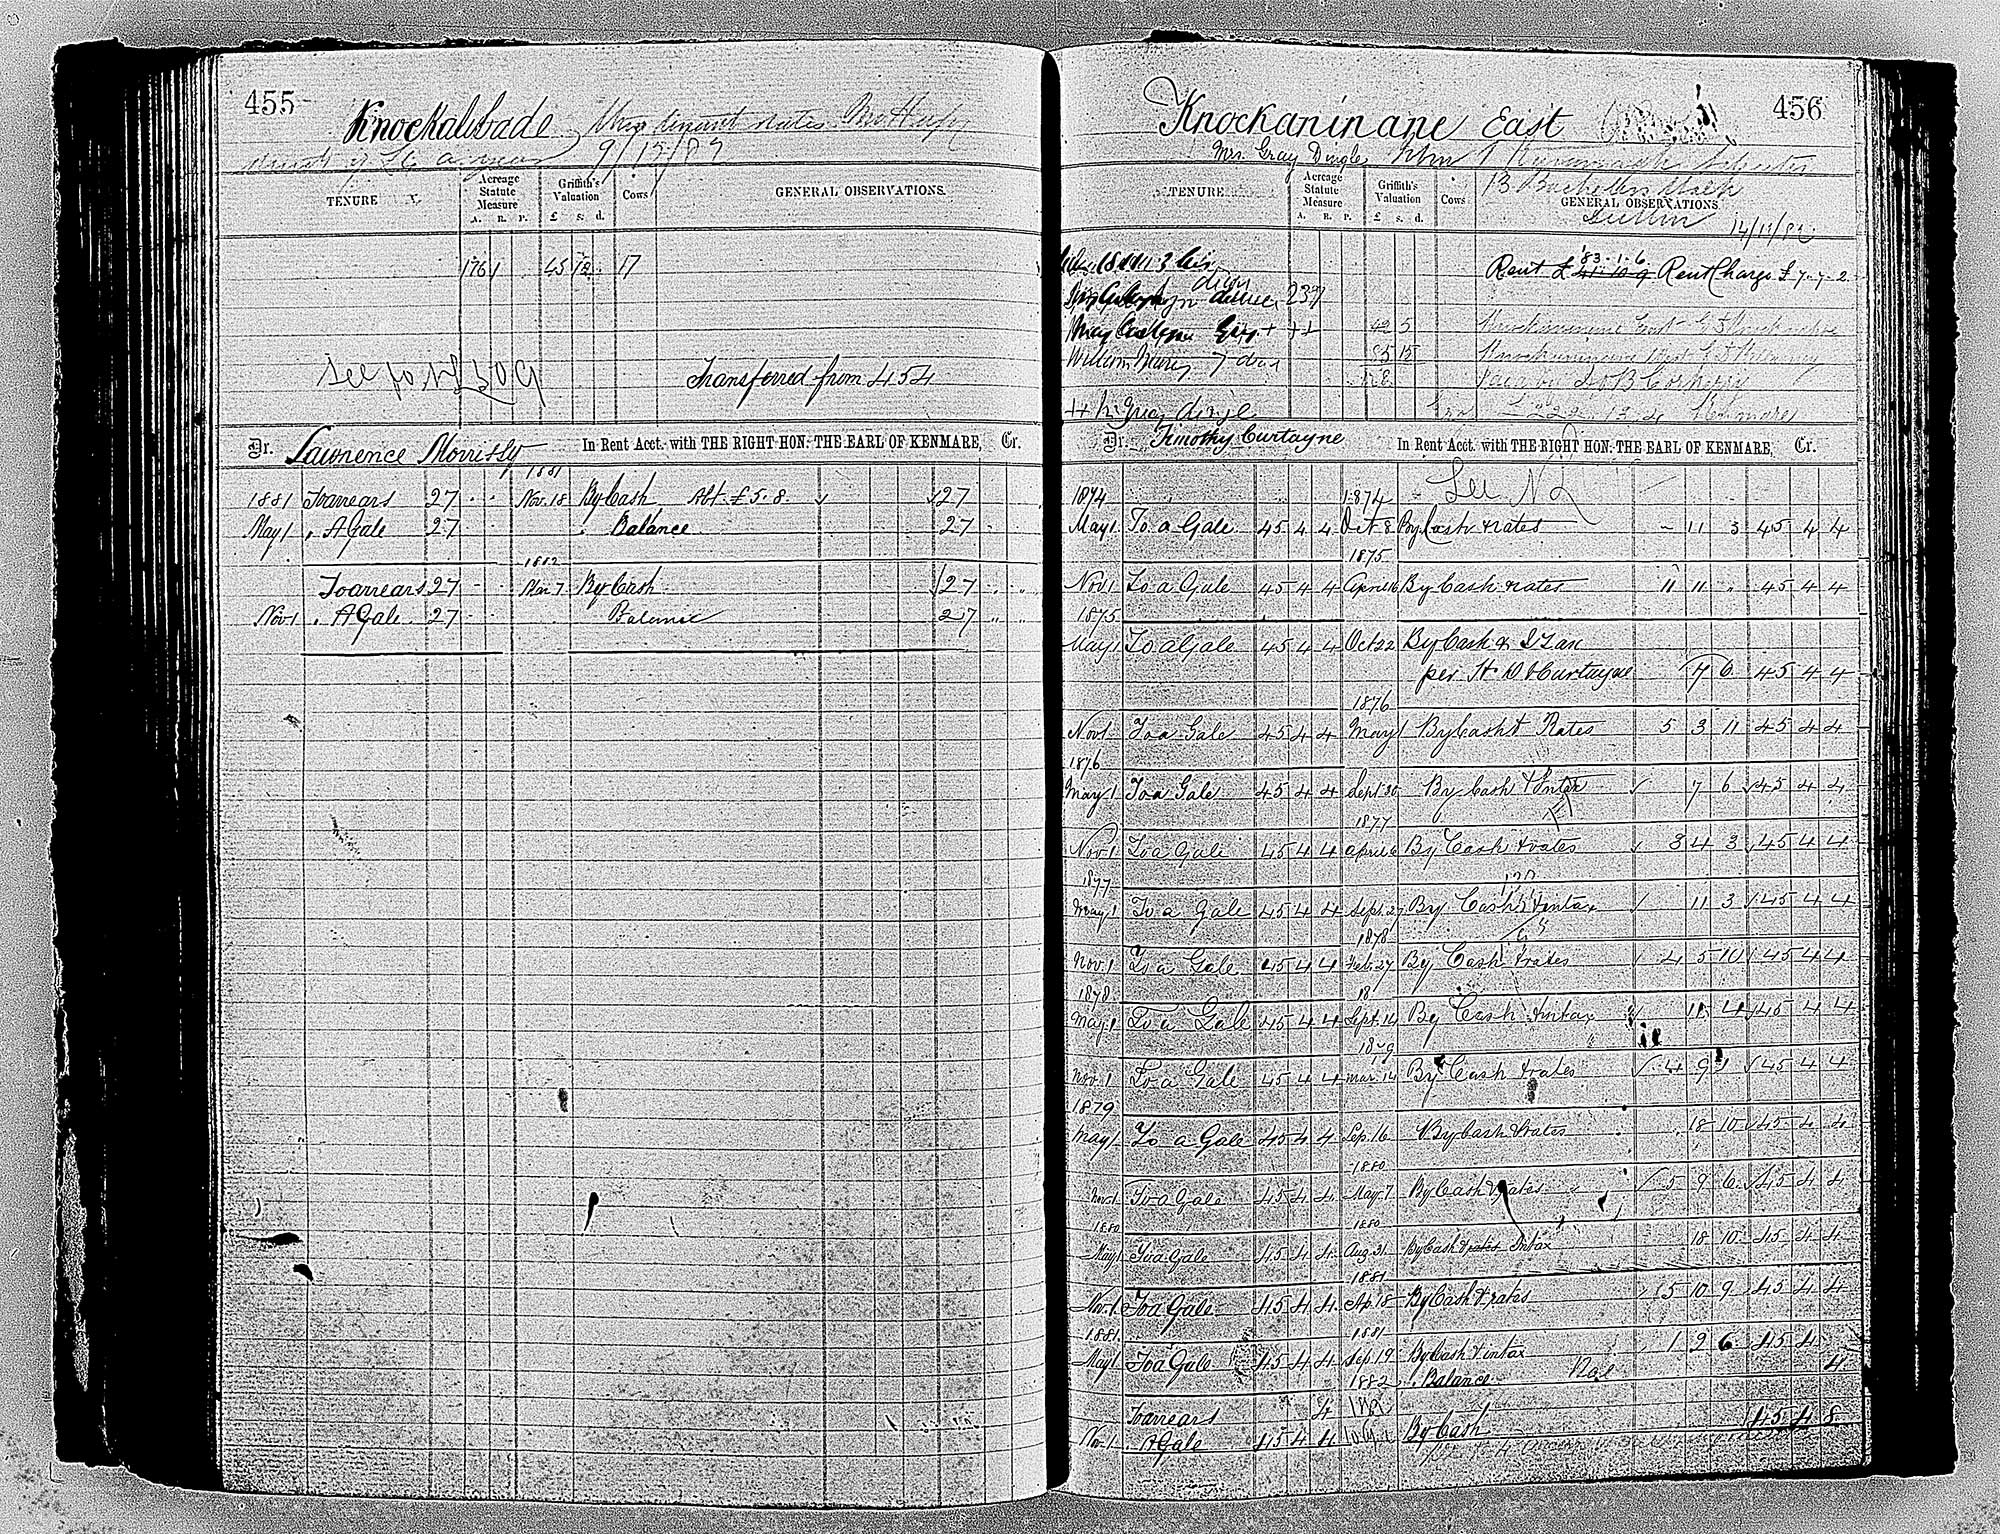 455
Knockalibade This tenant states
9/13/87
TENURE
Acreage Statute Measure
A. R. P.
Griffith's Valuation
£ s. d.
Cows
GENERAL OBSERVATIONS.
176 1 45 12 17
See fo. NL 309
Transferred from 454
Dr. Lawrence Morrissy In Rent Acct. with THE RIGHT HON: THE EARL OF KENMARE, Cr.
1881
1881 To arrears 27 Nov. 18 By Cash Abt. £5.8. 27
May 1 " A Gale 27 " Balance 27
1882
To arrears 27 7 By Cash 27
Nov 1 " A Gale 27 Balance 27
456
Knockaninane East
Mrs. Gray Dingle
13 Bachelors Walk
Dublin 14/11/82
TENURE
Acreage Statute Measure
A. R. P.
Griffith's Valuation
£ s. d.
Cows
GENERAL OBSERVATIONS.
Rent £ 41. 10. 9 83. 1. 6 Rent Charge £7-7-2
237
42 5 Knockaninane East
William 85 15 Knockaninane West
Gray Dingle
Dr. Timothy Curtayne In Rent Acct. with THE RIGHT HON: THE EARL OF KENMARE, Cr.
See NL
1874 1874
May 1 To a Gale 45 4 4 Oct 8 By Cash & rates 11 3 45 4 4
1875
Nov 1 To a Gale 45 4 4 April 16 By Cash & rates 11 11 " 45 4 4
1875
May 1 To a Gale 45 4 4 Oct 22 By Cash & I Tax
per Curtayne 7 6 45 4 4
1876
Nov 1 To a Gale 45 4 4 May 1 By Cash & Rates 5 3 11 45 4 4
1876
May 1 To a Gale 45 4 4 Sept 30 By Cash & Intax 7 6 45 4 4
1877
Nov 1 To a Gale 45 4 4 April 6 By Cash & rates 3 4 3 45 4 4
1877
May 1 To a Gale 45 4 4 Sept. 27 By Cash & intax 11 3 45 4 4
1878
Nov. 1 To a Gale 45 4 4 Feb. 27 By Cash & rates 4 5 10 45 4 4
1878 18
May 1 To a Gale 45 4 4 Sept. 14 By Cash & intax 11 4 45 4 4
1879
Nov. 1 To a Gale 45 4 4 Mar. 14 By Cash & rates 4 9 1 45 4 4
1879
May 1 To a Gale 45 4 4 Sep. 16 By Cash & rates 18 10 45 4 4
1880
Nov. 1 To a Gale 45 4 4 May 7 By Cash & rates 5 9 6 45 4 4
1880 1880
May 1 To a Gale 45 4 4 Aug. 31 By Cash & rates Intax 18 10 45 4 4
1881
Nov. 1 To a Gale 45 4 4 Ap. 18 By Cash & rates 5 10 9 45 4 4
1881 1881
May 1 To a Gale 45 4 4 Sep 19 By Cash & intax 1 2 6 45 4
1882 " Balance 4
To arrears 4
Nov 1 A Gale 45 4 4 By Cash 45 4 8